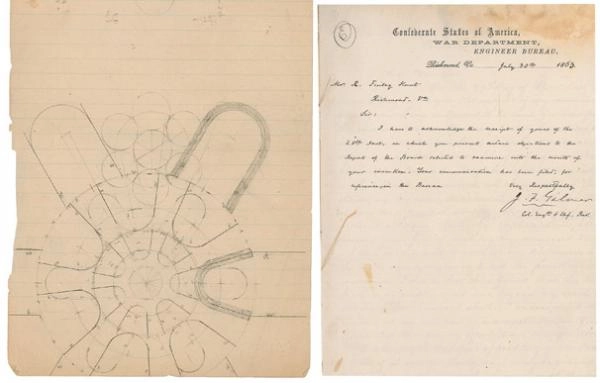 3
Confederate States of America,
WAR DEPARTMENT,
ENGINEER BUREAU,
Richmond, Va July 30th 1863.
Mr. R. Finley Hunt
Richmond. Va
Sir:
I have to acknowledge the receipt of yours of the
28th Inst, in which you present certain objections to the
Report of the Board detailed to examine into the merits of
your invention. Your communication has been filed, for
reference, in this Bureau
Very Respectfully
J. F. Gilmer
Col. Engrs & Chf. Bur.